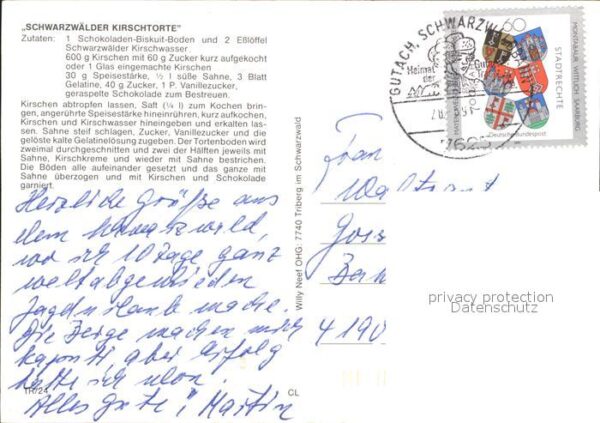 „SCHWARZWÄLDER KIRSCHTORTE"
Zutaten: 1 Schokoladen-Biskuit-Boden und 2 Eßlöffel
Schwarzwälder Kirschwasser
600 g Kirschen mit 60 g Zucker kurz aufgekocht
oder 1 Glas eingemachte Kirschen
30 g Speisestärke, ½ l süße Sahne, 3 Blatt
Gelatine, 40 g Zucker, 1 P. Vanillezucker,
geraspelte Schokolade zum Bestreuen.
Kirschen abtropfen lassen, Saft (¼ l) zum Kochen brin-
gen, angerührte Speisestärke hineinrühren, kurz aufkochen,
Kirschen und Kirschwasser hineingeben und erkalten las-
sen. Sahne steif schlagen, Zucker, Vanillezucker und die
gelöste kalte Gelatinelösung zugeben. Der Tortenboden wird
zweimal durchgeschnitten und zwei der Hälften jeweils mit
Sahne, Kirschkreme und wieder mit Sahne bestrichen.
Die Böden alle aufeinander gesetzt und das ganze mit
Sahne überzogen und mit Kirschen und Schokolade
garniert.
Herzliche Grüße aus
dem Schwarzwald,
wo ich 10 Tage ganz
weltabgeschieden
Jagdurlaub mache.
Die Berge machen mich
kaputt, aber Erfolg
hatte ich schon.
Alles Gute! Martin
TR/24
CL
Willy Neef OHG · 7740 Triberg im Schwarzwald
GUTACH, SCHWARZW
Heimat
der
7625
60
STADTRECHTE
MONTABAUR WITTLICH SAARBURG
Deutsche Bundespost
Frau
Waltraut
4190
privacy protection
Datenschutz